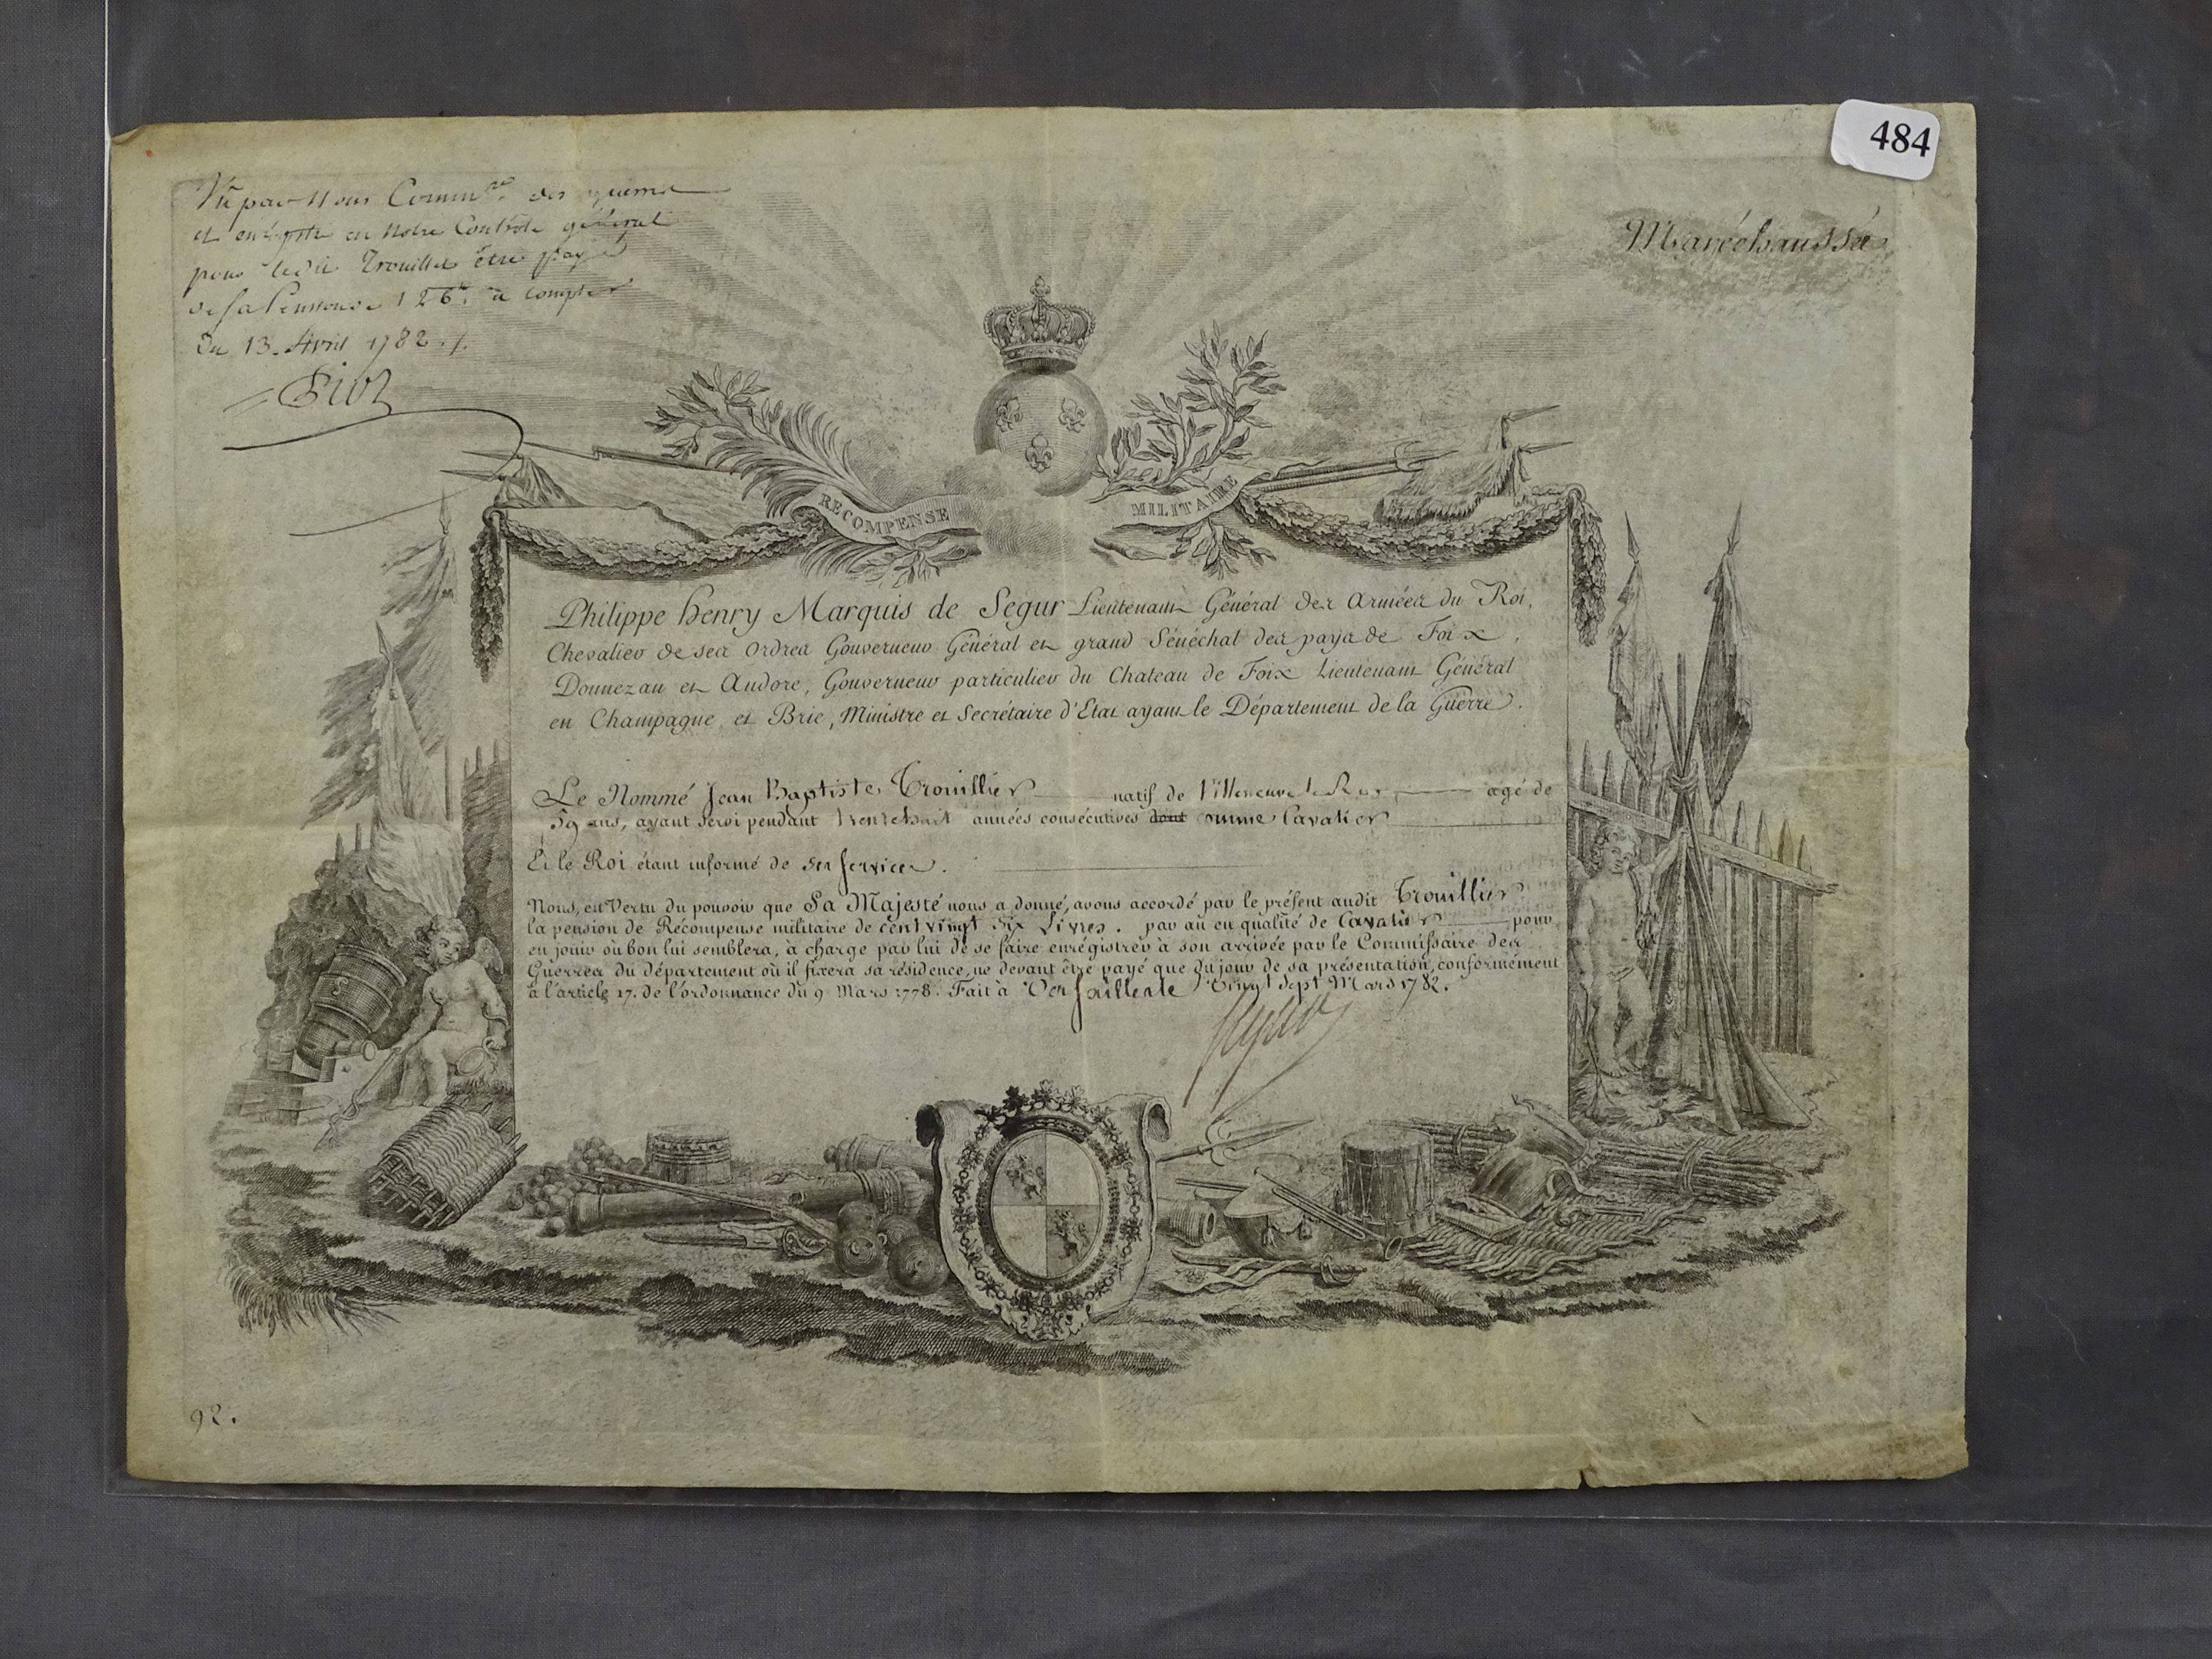 484
Vu par Nous Comm.re des guerres
et enregistré en notre Contrôle général
pour ledit Trouillet être payé
de sa Pension de 126lt. à compter
du 13. Avril 1782 ./.
Maréchaussée
RECOMPENSE MILITAIRE
Philippe henry Marquis de Segur Lieutenant Général des Armées du Roi,
Chevalier de ses Ordres Gouverneur Général et grand Sénéchal des pays de Foix,
Donnezan et Andore, Gouverneur particulier du Chateau de Foix Lieutenant Général
en Champagne et Brie, Ministre et Secrétaire d'Etat ayant le Département de la Guerre.
Le Nommé Jean Baptiste Trouillier natif de Villeneuve le agé de
59 ans, ayant servi pendant trente huit années consécutives dont comme Cavalier
Et le Roi étant informé de ses services.
Nous, en Vertu du pouvoir que Sa Majesté nous a donné, avons accordé par le présent audit Trouillier
la pension de Récompense militaire de cent vingt Six Livres. par an en qualité de Cavalier pour
en jouir où bon lui semblera, à charge par lui de se faire enrégistrer à son arrivée par le Commissaire des
Guerres du département où il fixera sa résidence, ne devant être payé que du jour de sa présentation, conformément
à l'article 17. de l'ordonnance du 9 Mars 1778. Fait à Versailles le Vingt Sept Mars 1782.
Segur
92.